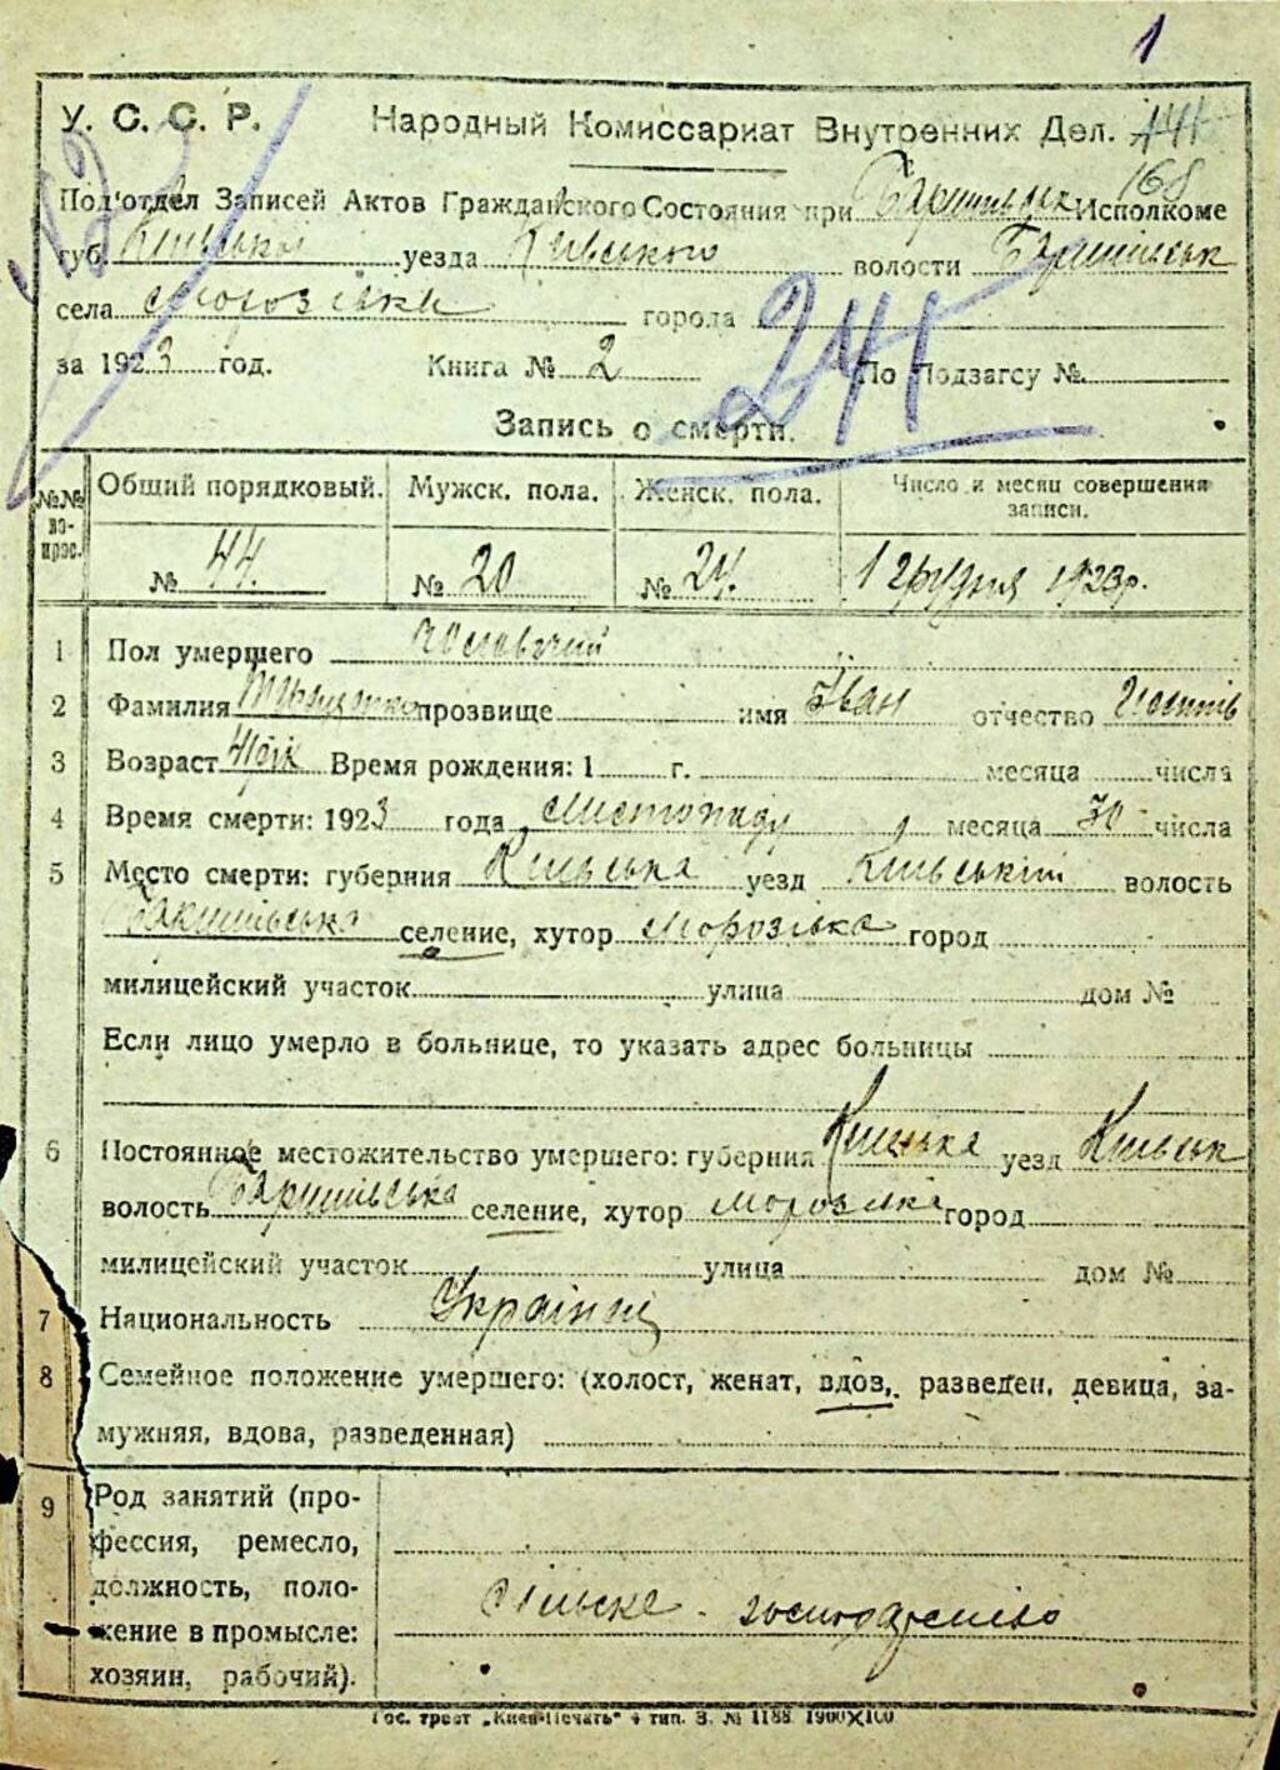 1
У. С. С. Р. Народный Комиссариат Внутренних Дел.
168
Под'отдел Записей Актов Гражданского Состояния при Исполкоме
губ. Київська уезда Київського волости Баришівськ
села Морозівки города
241
за 1923 год. Книга № 2 По Подзагсу №
Запись о смерти.
№№ во-прос. Общий порядковый. Мужск. пола. Женск. пола. Число и месяц совершения записи.
№ 44. № 20 № 24. 1 грудня 1923р.
1 Пол умершего чоловічий
2 Фамилия прозвище имя Іван отчество
3 Возраст Время рождения: 1 г. месяца числа
4 Время смерти: 1923 года Листопаду месяца 30 числа
5 Место смерти: губерния Київська уезд Київський волость
Баришівська селение, хутор Морозівка город
милицейский участок улица дом №
Если лицо умерло в больнице, то указать адрес больницы
6 Постоянное местожительство умершего: губерния Київська уезд Київськ
волость Баришівська селение, хутор Морозівка город
милицейский участок улица дом №
7 Национальность Українец
8 Семейное положение умершего: (холост, женат, вдов, разведен, девица, за-
мужняя, вдова, разведенная)
9 Род занятий (про-
фессия, ремесло,
должность, поло-
жение в промысле:
хозяин, рабочий).
Сільске господарство
Гос. трест „Киев-Печать" 4 тип. З. № 1188 1900X100